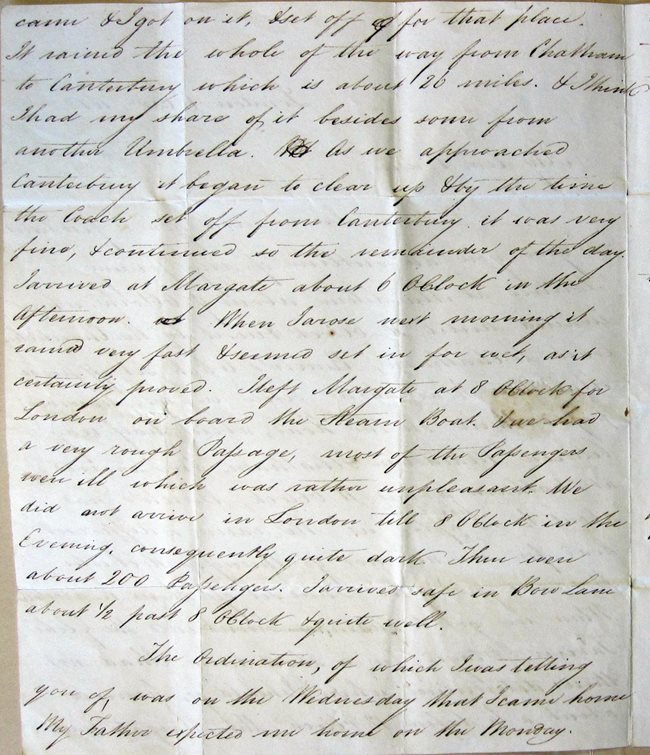 came & I got on it, & set off for that place.
It rained the whole of the way from Chatham
to Canterbury which is about 26 miles. & I think
I had my share of it besides some from
another Umbrella. As we approached
Canterbury it began to clear up & by the time
the Coach set off from Canterbury it was very
fine, & continued so the remainder of the day.
I arrived at Margate about 6 OClock in the
Afternoon. When I arose next morning it
raind very fast & seemed set in for wet, as it
certainly proved. I left Margate at 8 OClock for
London on board the Steam Boat. & we had
a very rough Passage, most of the Passengers
were ill which was rather unpleasant. We
did not arrive in London till 8 OClock in the
Evening, consequently quite dark There were
about 200 Passengers. I arrived safe in Bow Lane
about 1/2 past 8 OClock & quite well.
The Ordination, of which I was telling
you of, was on the Wednesday that I came home
My Father expected me home on the Monday.